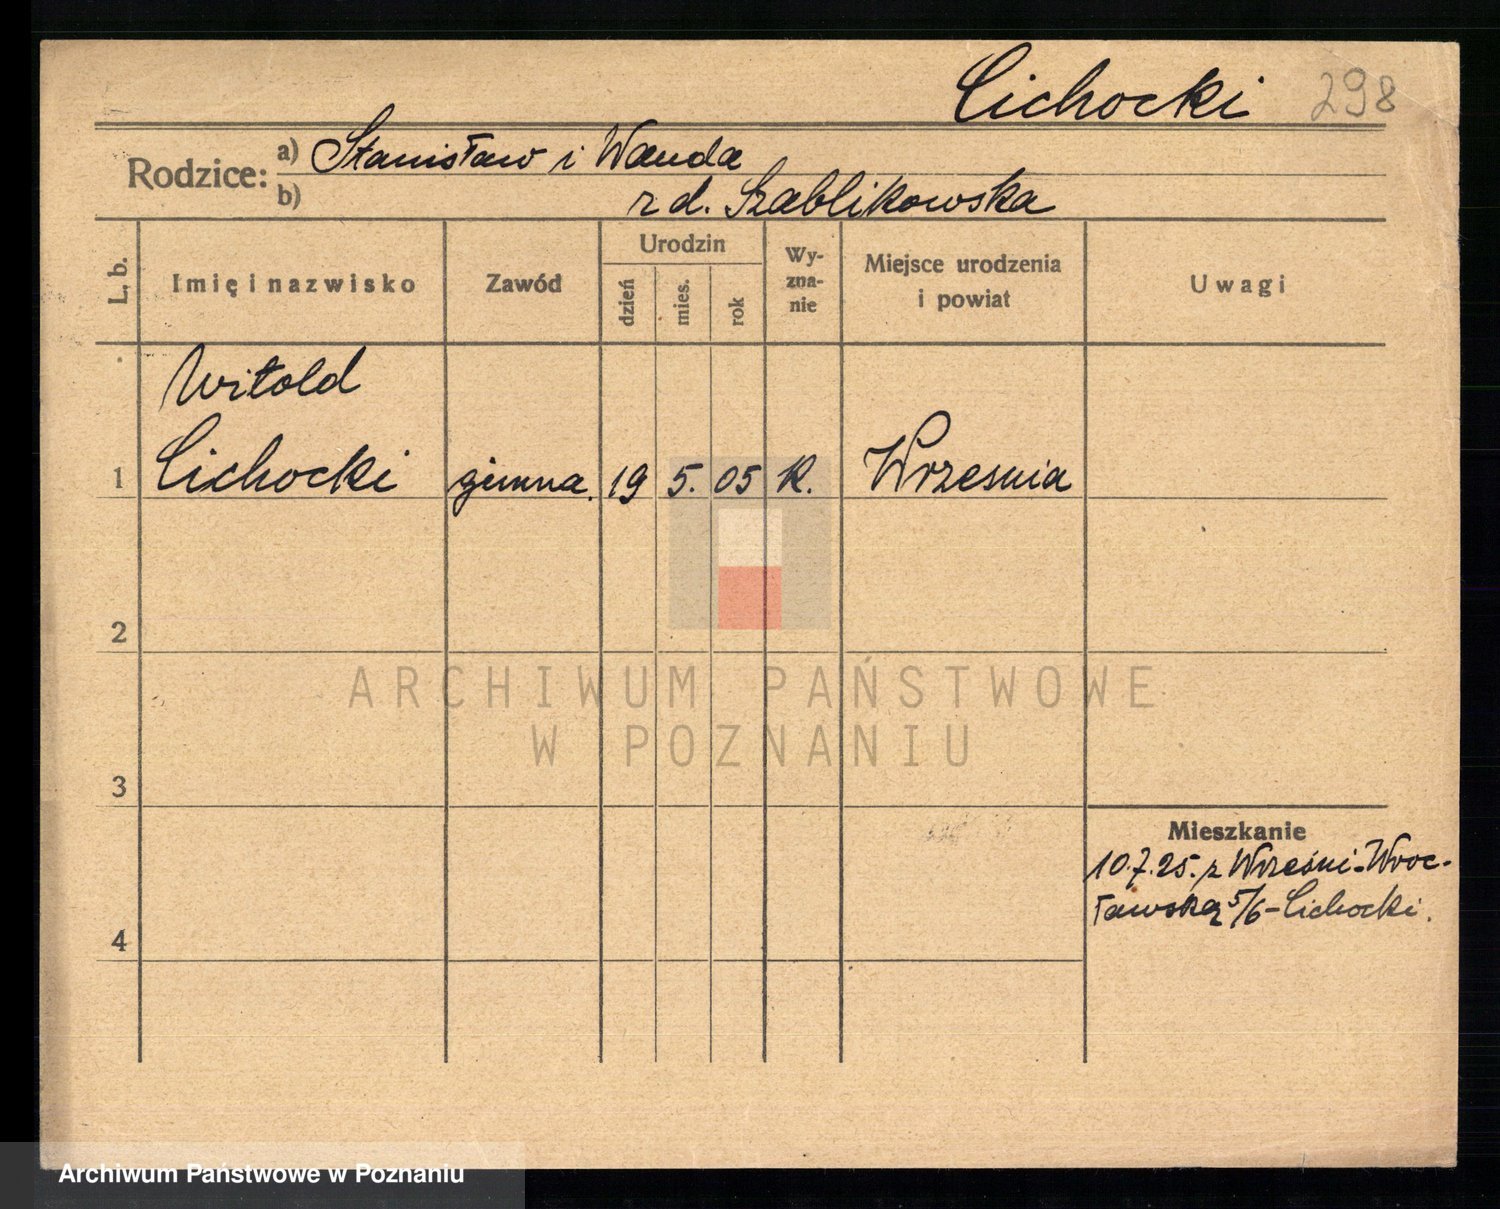 Cichocki 298
Rodzice: a) Stanisław i Wanda
b) z d. Szablikowska
L. b.
Imię i nazwisko
Zawód
Urodzin
dzień
mies.
rok
Wy-
zna-
nie
Miejsce urodzenia
i powiat
Uwagi
Witold
1 Cichocki gimna. 19 5. 05 K. Wrzesnia
2
ARCHIWUM PAŃSTWOWE
W POZNANIU
3
Mieszkanie
10.7.25. z Wrześni-Wroc-
ławską 5/6-Cichocki.
4
Archiwum Państwowe w Poznaniu